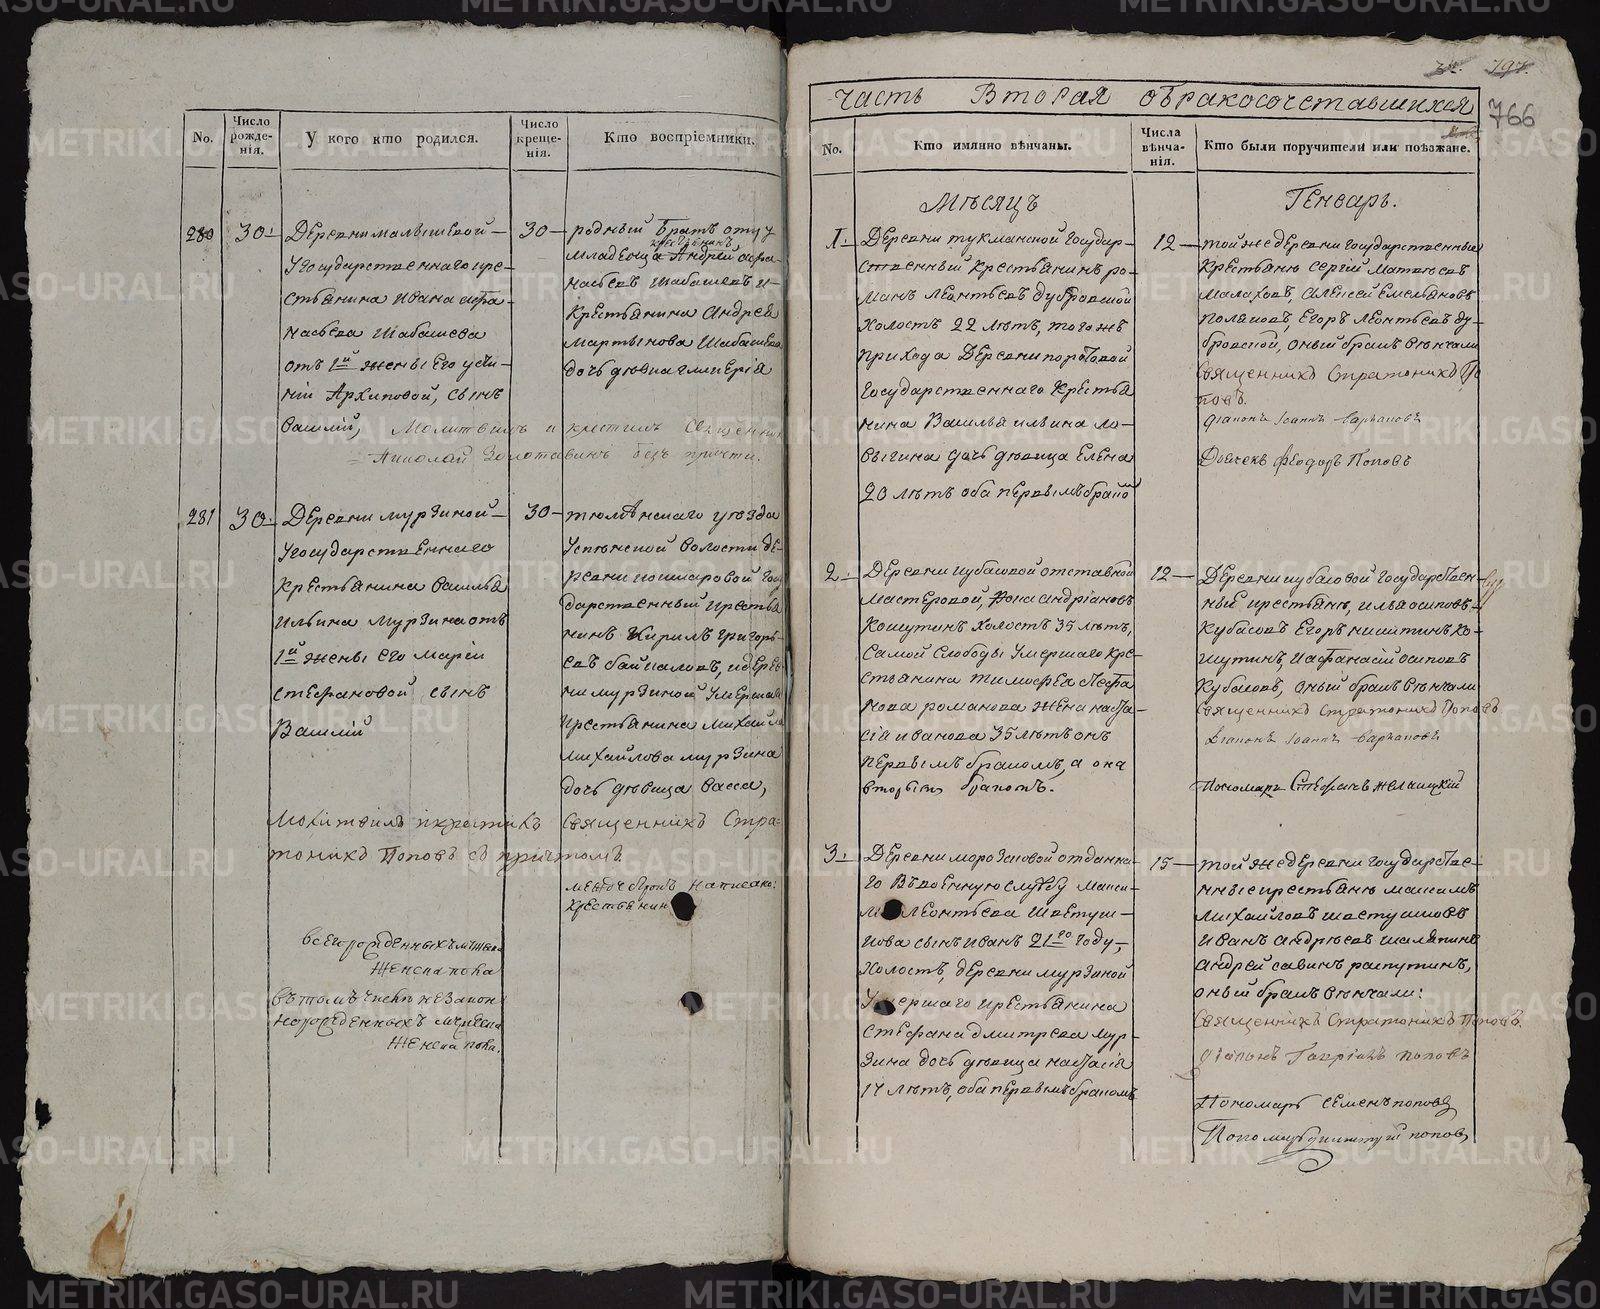 No.
Число рожде-нія.
У кого кто родился.
Число креще-нія.
Кто воспріемники.
280
30
Деревни малышевой
угосударственнаго кре-
стьянина Ивана афа-
насьева Шабашева
отъ 1й жены Его усти-
ніи Архиповой, сынъ
Василій, Молитвилъ и крестилъ Священникъ
Николай Золотавинъ безъ причта.
30
родный братъ отцу
крестьянинъ
младенца Андрей афа
насьевъ Шабашевъ и
Крестьянина Андрея
мартынова Шабашева
дочь девица гликерія
281
30
Деревни мурзиной
угосударственнаго
Крестьянина Василья
Ильина Мурзина отъ
1й жены Его маріи
стефановой сынъ
Василій
30
тюменскаго уезда
Успенской волости де-
ревни кошкаровой госу
дарственный кресть
нинъ Кирилъ григорь
евъ байкаловъ, идерев
ни мурзиной умершаго
крестьянина михайла
михайлова мурзина
дочь девица Васса,
Молитвилъ икрестилъ Священникъ Стра-
тоникъ Поповъ съ причтомъ.
между строкъ написано:
Крестьянин
всегорожденныхъ мужска
женска пола
Вътомъ числѣ незакон
норожденныхъ мужска
женска пола.
797.
766
Часть Вторая обракосочетавшихся
No.
Кто имянно вѣнчаны.
Числа вѣнча-нія.
Кто были поручители или поѣзжане.
Мѣсяцъ
Генварь.
1.
Деревни тукманской государ-
ственный Крестьянинъ ро-
манъ леонтьевъ дубровской
холостъ 22 лѣтъ, тогожъ
прихода Деревни поротовой
государственнаго Крестья
нина Василья ильина ло-
выгина дочь девица Елена
20 лѣтъ оба первымъ бракомъ
12
той же деревни государственные
Крестьяне Сергій Матвеевъ
малаховъ, Алексей Емельяновъ
поляковъ, Егоръ Леонтьевъ ду-
бровской, оный бракъ венчали
Священникъ Стратоникъ По
повъ.
діаконъ Іоаннъ Варлаковъ
Дьячекъ феодоръ Поповъ
2.
Деревни кубасовой отставной
мастеровой, Иона андріановъ
Кошутинъ холостъ 35 лѣтъ,
Самой Слободы умершаго кре-
стьянина тимофея Стефа
нова романова жена наста
сія иванова 35 лѣтъ онъ
первымъ бракомъ, а она
вторымъ бракомъ.
12
Деревни кубасовой государствен-
ные крестьяне, илья осиповъ
Кубасовъ Егоръ никитинъ ко-
шутинъ, иафанасій осиповъ
Кубасовъ, оный бракъ венчали
Священникъ Стратоникъ Поповъ
Діаконъ Іоаннъ Варлаковъ
Пономарь Стефанъ
3.
Деревни морозковой отданна-
го въ военную службу макси-
ма леонтьева Шестуш-
кова сынъ иванъ 21го году,
холостъ, деревни мурзиной
Умершаго крестьянина
стефана дмитрева мур-
зина дочь девица настасія
17 лѣтъ, оба первымъ бракомъ
15
той же деревни государстве-
нные крестьяне максимъ
михайловъ шестушковъ
иванъ андреевъ шаляпинъ
андрей савинъ распутинъ,
оный бракъ венчали:
Священникъ Стратоникъ Поповъ.
діаконъ Гавріилъ поповъ
Пономарь семенъ поповъ
Пономарь димитрій поповъ
METRIKI.GASO-URAL.RU